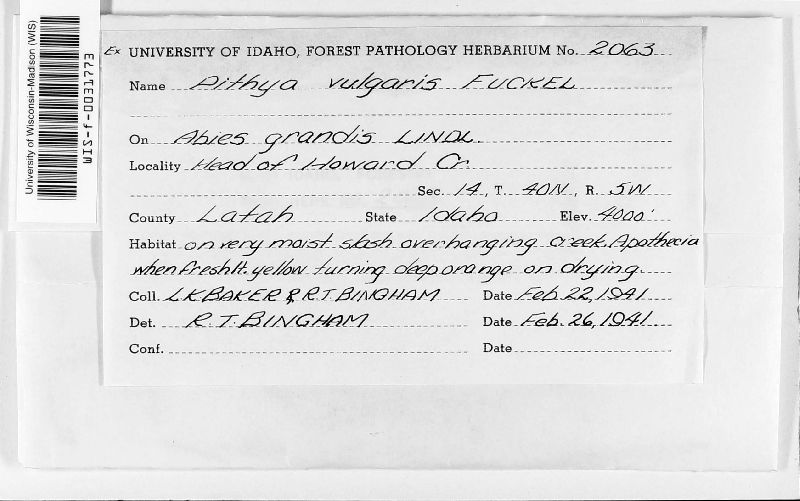 University of Wisconsin-Madison (WIS)
WIS-f-0031773
Ex UNIVERSITY OF IDAHO, FOREST PATHOLOGY HERBARIUM No. 2063
Name Pithya vulgaris FUCKEL
On Abies grandis LINDL.
Locality Head of Howard Cr.
Sec. 14, T. 40N, R. 5W
County Latah State Idaho Elev. 4000'
Habitat on very moist slash overhanging creek. Apothecia
when fresh lt. yellow turning deep orange on drying.
Coll. L.K. BAKER & R.T. BINGHAM Date Feb 22, 1941
Det. R.T. BINGHAM Date Feb. 26, 1941
Conf. Date